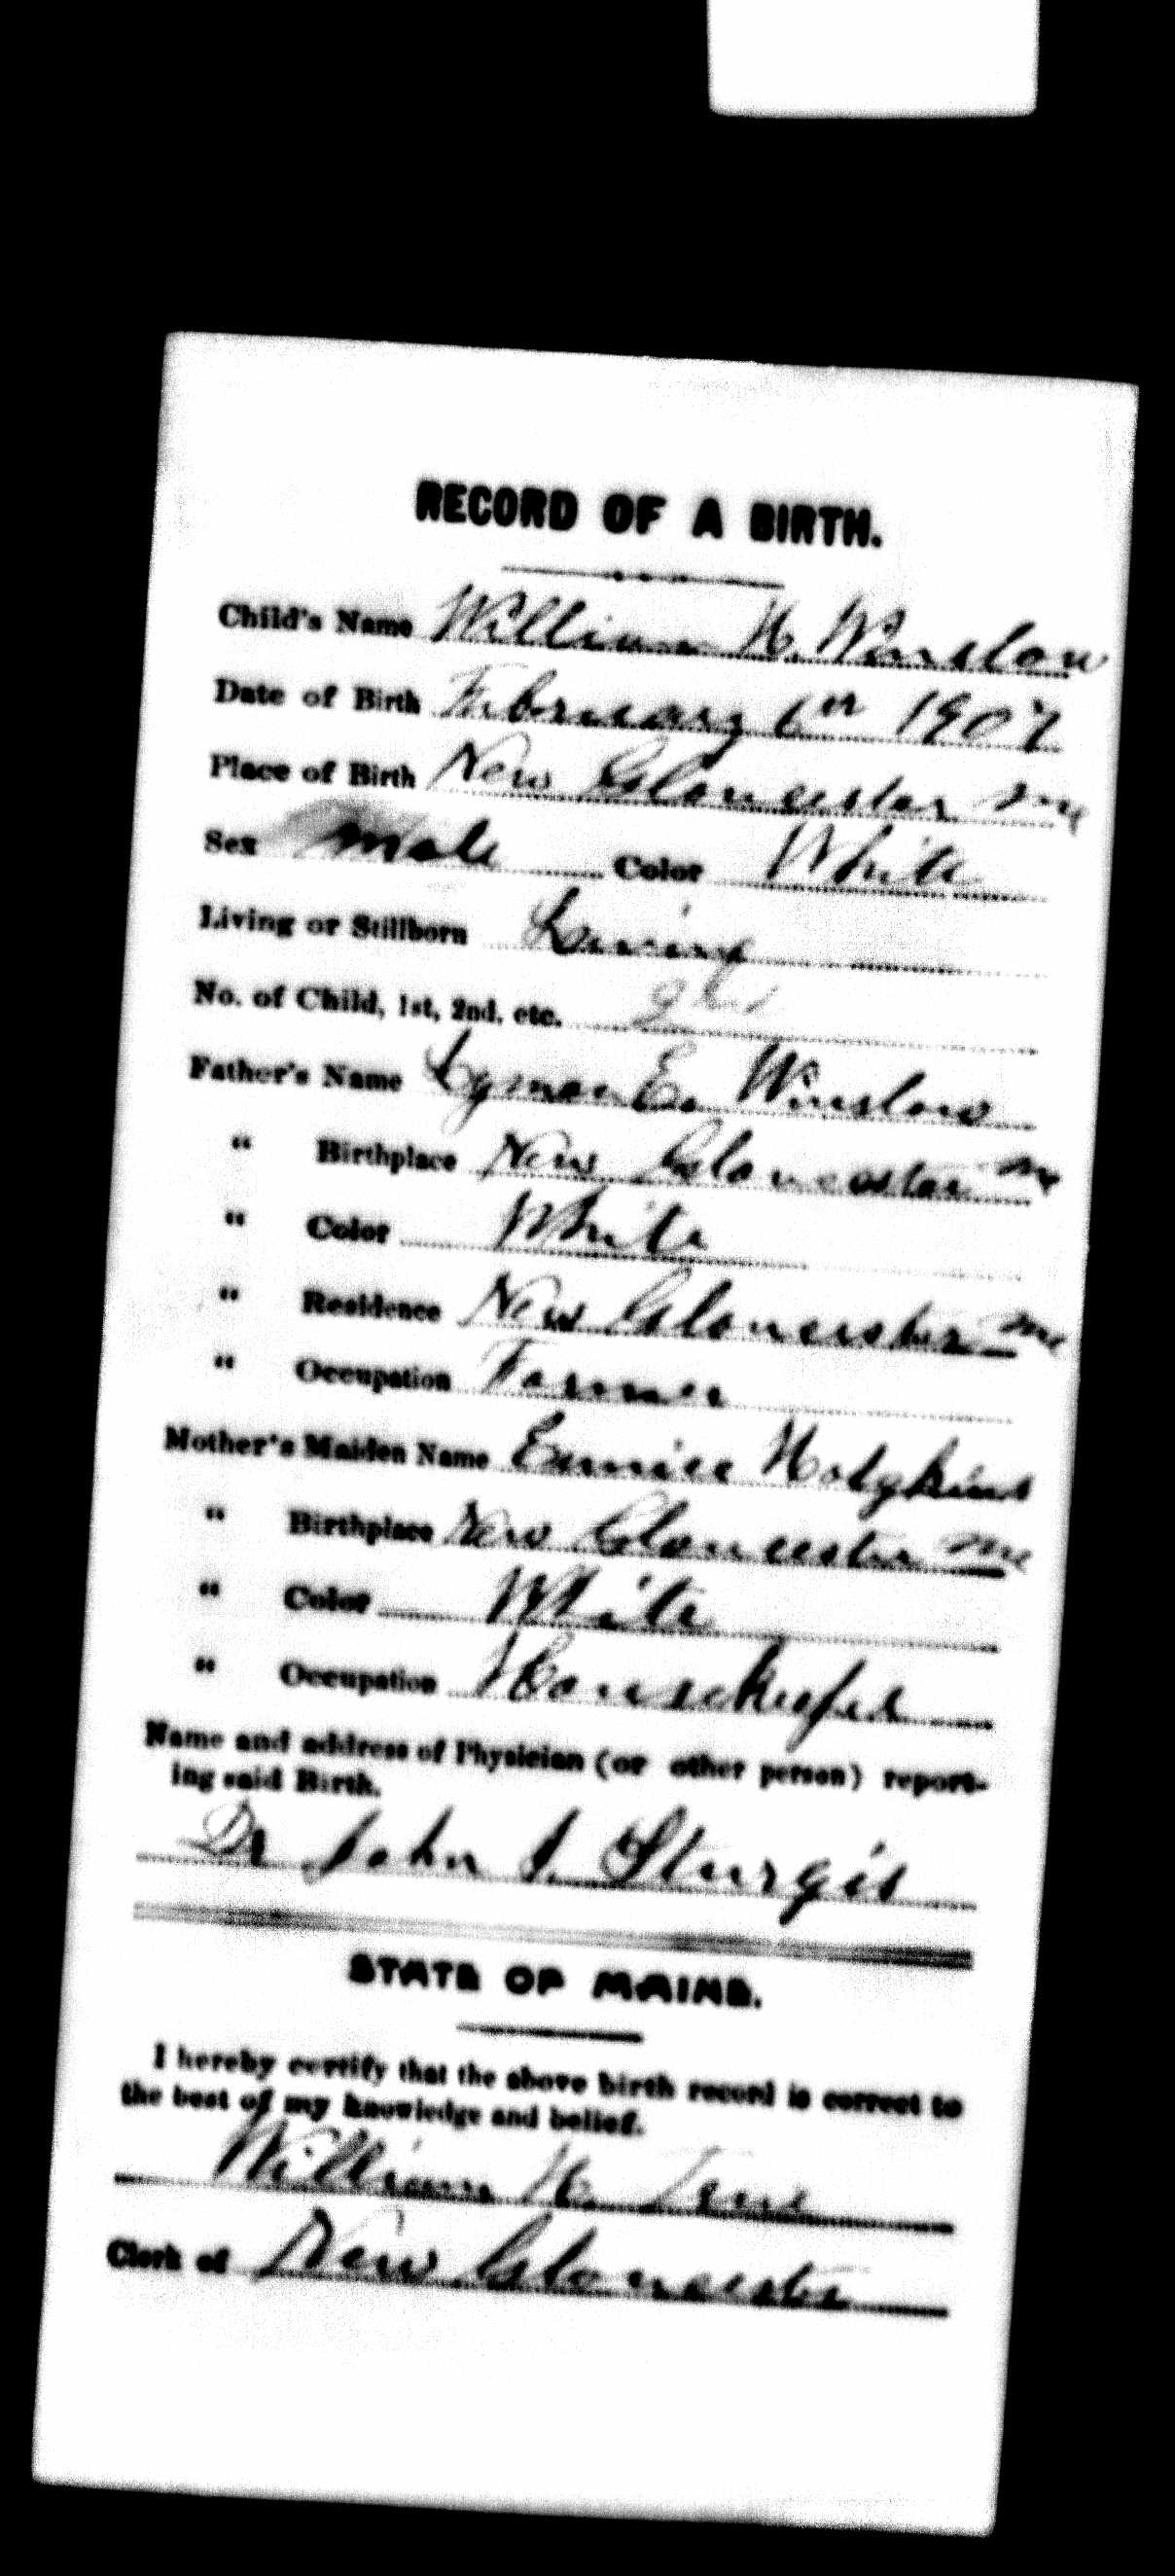 RECORD OF A BIRTH.
Child's Name William H. Winslow
Date of Birth February 6th 1907
Place of Birth New Gloucester Me
Sex Male Color White
Living or Stillborn Living
No. of Child, 1st, 2nd, etc.
Father's Name Lyman E. Winslow
" Birthplace New Gloucester Me
" Color White
" Residence New Gloucester Me
" Occupation Farmer
Mother's Maiden Name Eunice Hodgkins
" Birthplace New Gloucester Me
" Color White
" Occupation Housekeeper
Name and address of Physician (or other person) report-
ing said Birth.
Dr John I. Sturgis
STATE OF MAINE.
I hereby certify that the above birth record is correct to
the best of my knowledge and belief.
William H. True
Clerk of New Gloucester